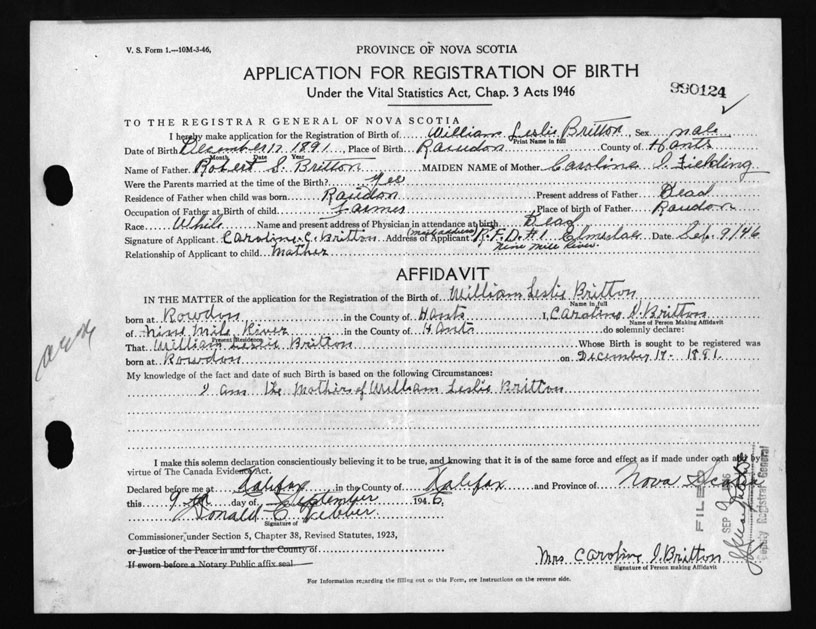 V. S. Form 1.—10M-3-46.
PROVINCE OF NOVA SCOTIA
APPLICATION FOR REGISTRATION OF BIRTH
Under the Vital Statistics Act, Chap. 3 Acts 1946
990124
TO THE REGISTRAR GENERAL OF NOVA SCOTIA
I hereby make application for the Registration of Birth of William Leslie Britton, Sex male
Print Name in full
Date of Birth December 17 1891 Place of Birth Rawdon County of Hants
Month Date Year
Name of Father Robert S. Britton MAIDEN NAME of Mother Caroline I. Fielding
Were the Parents married at the time of the Birth? Yes
Residence of Father when child was born Rawdon Present address of Father Dead
Occupation of Father at Birth of child Farmer Place of birth of Father Rawdon
Race White Name and present address of Physician in attendance at birth Dead
Signature of Applicant Caroline C. Britton Address of Applicant (mail address) R.F.D. #1 Elmsdale Date Sep. 9/46
Nine Mile River.
Relationship of Applicant to child Mother
AFFIDAVIT
IN THE MATTER of the application for the Registration of Birth of William Leslie Britton
Name in full
born at Rowdon in the County of Hants I, Caroline I. Britton
Name of Person Making Affidavit
of Nine Mile River in the County of Hants do solemnly declare:
Present Residence
That William Leslie Britton Whose Birth is sought to be registered was
born at Rowdon on December 17 - 1891
My knowledge of the fact and date of such Birth is based on the following Circumstances:
I am the Mother of William Leslie Britton
I make this solemn declaration conscientiously believing it to be true, and knowing that it is of the same force and effect as if made under oath and by
virtue of The Canada Evidence Act.
Declared before me at Halifax in the County of Halifax and Province of Nova Scotia
this 9th day of September 1946.
Donald C. Webber
Signature of
Commissioner under Section 5, Chapter 38, Revised Statutes, 1923,
or Justice of the Peace in and for the County of
If sworn before a Notary Public affix seal
Mrs Caroline I. Britton
Signature of Person making Affidavit
FILED
SEP 9
Deputy Registrar General
For Information regarding the filling out of this Form, see Instructions on the reverse side.